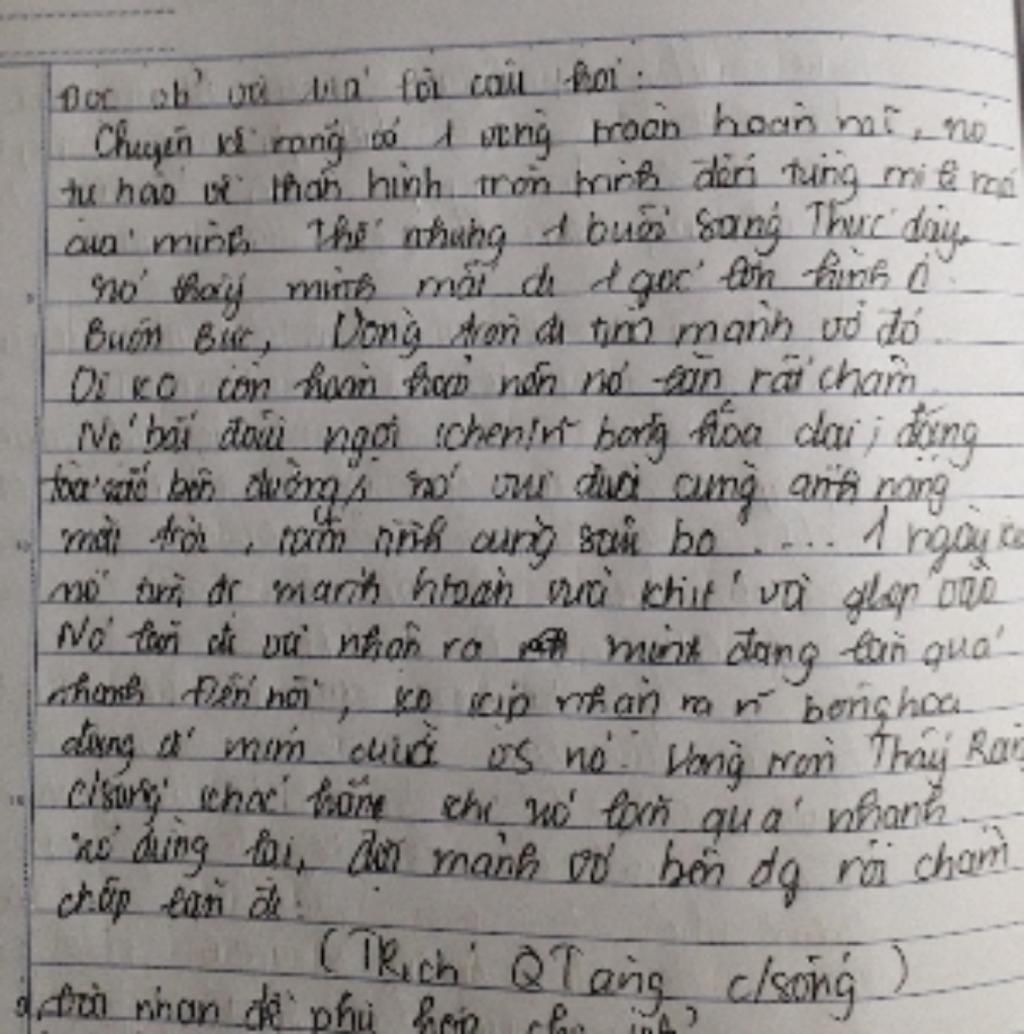 Đọc vb và trả lời câu hỏi:
Chuyện kể rằng có 1 vòng tròn hoàn mĩ, nó
tự hào về thân hình tròn trịnh đến từng mi li mét
của mình. Thế nhưng 1 buổi sáng Thức dậy,
nó thấy mình mất đi 1 góc lớn hình
Buồn Bực, Vòng tròn đi tìm mảnh vỡ đó.
Di ko còn hoàn hảo nên nó lăn rất chậm
Nó bắt đầu ngợi khen n~ bông hoa dại đang
tỏa sắc bên đường, nó vui đùa cùng ánh nắng
mặt trời, tâm tình cùng sâu bọ ..... 1 ngày kia
nó tìm đc mảnh hoàn vừa khít và ghép vào
Nó lăn đi và nhận ra mình đang lăn quá
nhanh đến nỗi, ko kịp nhận ra n~ bông hoa
đang mỉm cười vs nó. Vòng tròn Thấy Rằng
c/sống khác hẳn khi nó lăn quá nhanh.
nó dừng lại, đặt mảnh vỡ bên đg rồi chầm
chập lăn đi.
(TRích QTặng c/sống)
Đặt nhan đề phù hợp cho